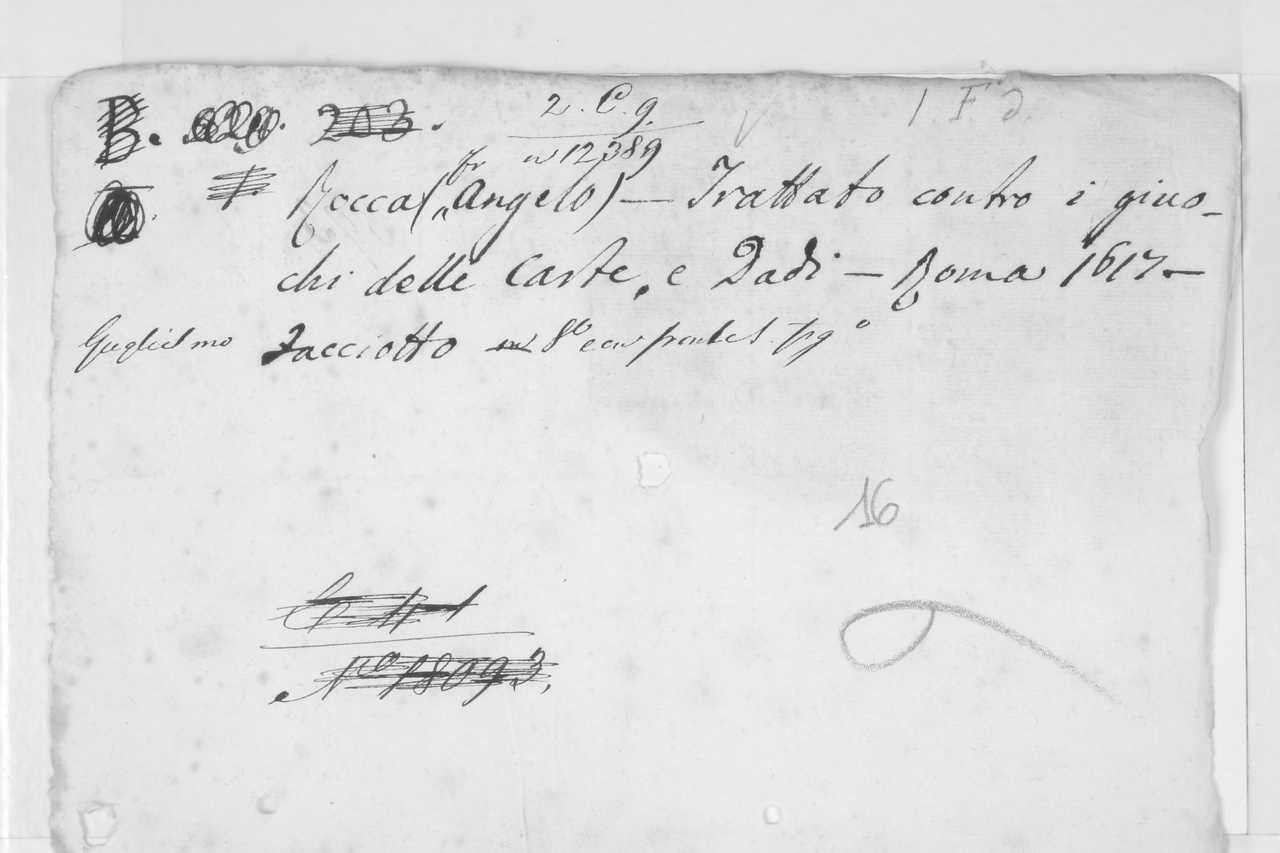 B. 203.
2. C. 9.
n 12389
V
1. F. d.
Rocca (fr Angelo) — Trattato contro i giuo-
chi delle Carte, e Dadi — Roma 1617 —
Guglielmo Facciotto in 8º con frontes. fig.º
16
Nº 18093.